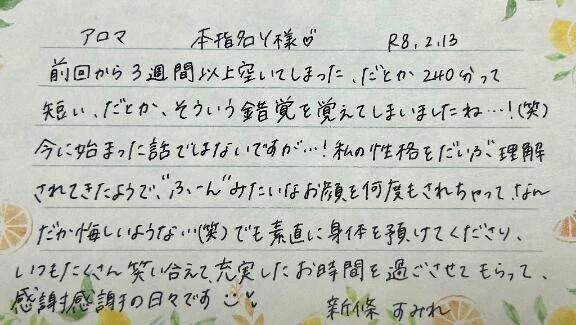 アロマ 本指名Y様♡ R8.2.13
前回から3週間以上空いてしまった、だとか240分って
短い、だとか、そういう錯覚を覚えてしまいましたね…!(笑)
今に始まった話ではないですが…!私の性格をだいぶ理解
されてきたようで、"ふーん"みたいなお顔を何度もされちゃって、なん
だか悔しいような…(笑)でも素直に身体を預けてくださり、
いつもたくさん笑い合えて充実したお時間を過ごさせてもらって、
感謝感謝の日々です
新條 すみれ